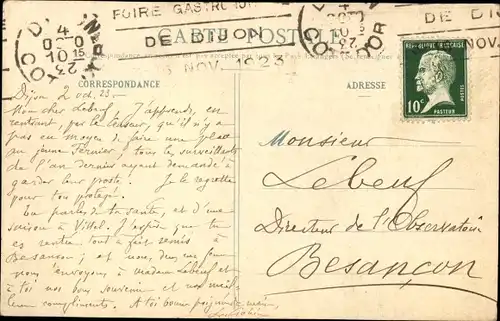 FOIRE GASTRONOMIQUE
DE DIJON
NOV. 1923
CARTE POSTALE
DE DIJON
CORRESPONDANCE
ADRESSE
REPUBLIQUE FRANÇAISE
10c
POSTES
PASTEUR
Dijon 2 oct. 23.
Mon cher Lebeuf, J'apprends, en
rentrant, par le censeur, qu'il n'y a
pas eu moyen de faire une place
au jeune Fernier, tous les surveillants
de l'an dernier ayant demandé à
garder leur poste. Je le regrette
pour ton protégé.
Tu parles de ta santé, et d'une
saison à Vittel. J'espère que tu
es rentré tout à fait remis à
Besançon; et nous
nous envoyons à madame Lebeuf et
à toi nos bons souvenirs et nos meil-
leurs compliments. A toi bonne poignée de main,
Monsieur
Lebeuf
Directeur de l'Observatoire
Besançon